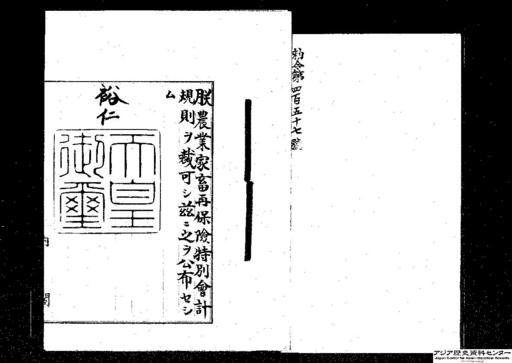 勅令第四百五十七號
朕農業家畜再保險特別會計
規則ヲ裁可シ茲ニ之ヲ公布セシ
ム
裕仁
天皇
御璽
内閣
アジア歴史資料センター
Japan Center for Asian Historical Records